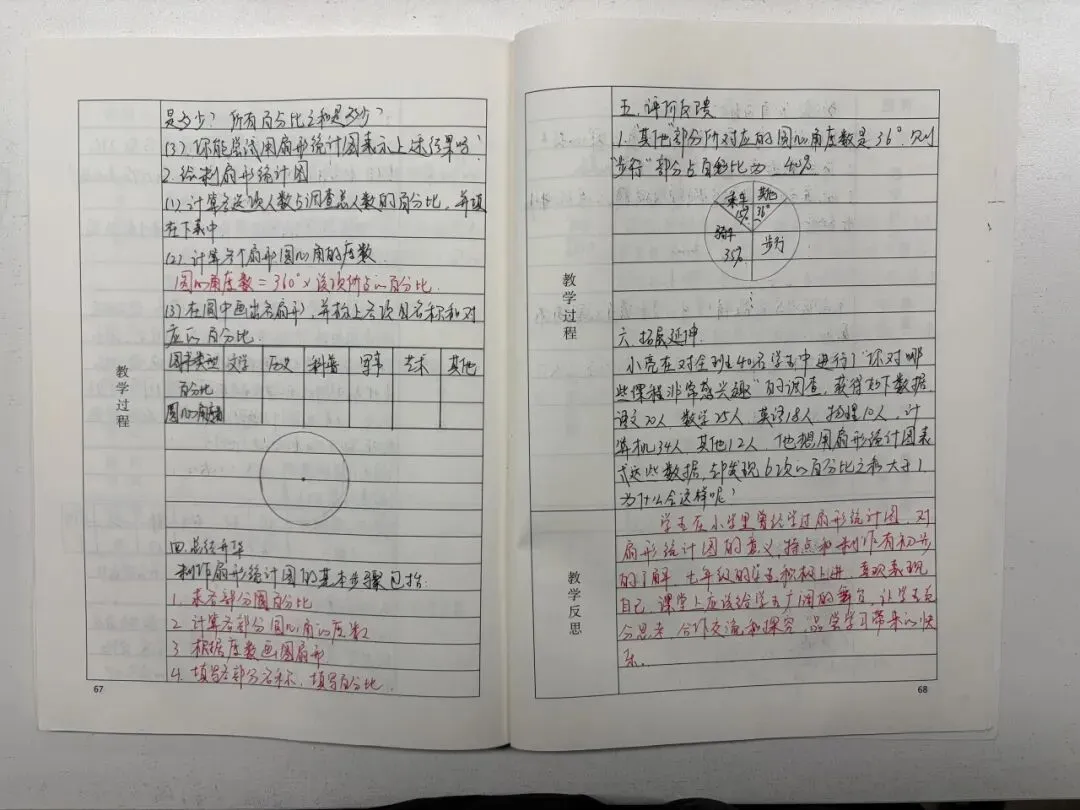 教学过程
是多少？所有百分比之和是多少？
(3).你能尝试用扇形统计图表示上述结果吗？
2.绘制扇形统计图
(1).计算各选项人数占调查总人数的百分比，并填
在下表中
(2).计算各个扇形圆心角的度数
圆心角度数=360°×该项所占的百分比.
(3).在圆中画出各扇形，并标上各项目名称和对
应的百分比.
图书类型 文学 历史 科普 军事 艺术 其他
百分比
圆心角度数
四.总结升华
制作扇形统计图的基本步骤包括:
1.求各部分百分比
2.计算各部分圆心角的度数
3.根据度数画扇形
4.填写各部分名称，填写百分比.
67
五.评价反馈
1."其他"部分所对应的圆心角度数是36°.则
"步行"部分占百分比为 40%
乘车 其他
15% 36°
骑车 步行
35%
教学过程
六.拓展延伸.
小亮在对全班40名学生中进行了"你对哪
些课程非常感兴趣"的调查，获得如下数据
语文20人 数学25人 英语18人 物理10人，计
算机34人，其他12人，他想用扇形统计图表
示这些数据，却发现6项的百分比之和大于1，
为什么会这样呢？
教学反思
学生在小学里曾经学过扇形统计图.对
扇形统计图的意义，特点和制作有初步
的了解.七年级的学生积极上进，喜欢表现
自己.课堂上应该给学生广阔的舞台，让学生充
分思考，合作交流和探究，品尝学习带来的快
乐.
68